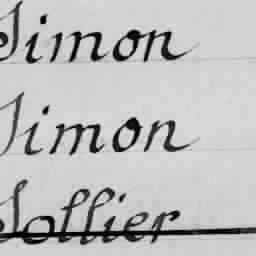 Simon
Simon
Sollier